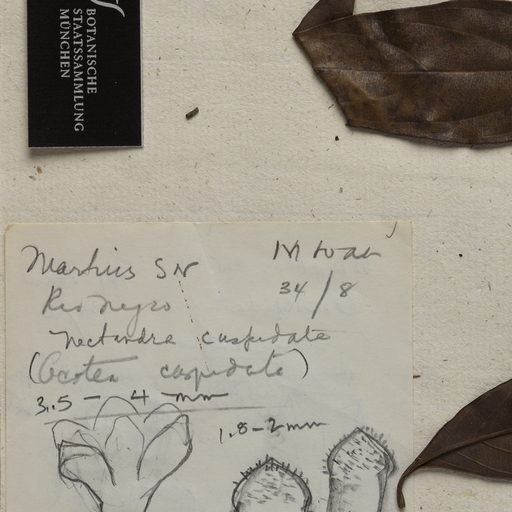 BOTANISCHE
STAATSSAMMLUNG
MÜNCHEN
Martius SN
34/8
Rio Negro
Nectandra cuspidata
(Ocotea cuspidata)
3.5 - 4 mm
1.8-2mm